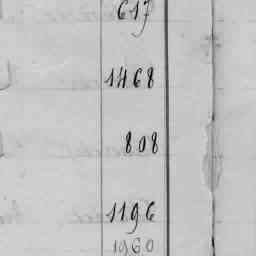 617
1468
808
1196
1960